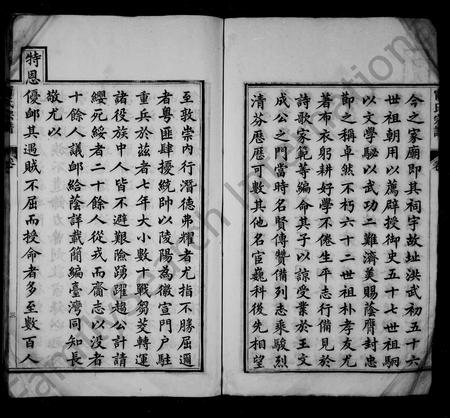 今之家廟即其祠宇故址洪武初五十六
世祖朝用以薦辟授御史五十七世祖駉
以文學駜以武功二難濟美賜蔭膺封忠
節之稱卓然不朽六十二世祖朴孝友尤
著布衣躬耕好學不倦生平志行備見於
詩歌家範等編命其子以諒受業於王文
成公之門當時名賢傳贊備列志乘駿烈
清芬歷歷可數其他名宦巍科後先相望
至敦崇內行潛德弗耀者尤指不勝屈邇
者粵匪肆擾統帥以陵陽為徽宣門戶駐
重兵於茲者七年大小數十戰芻茭轉運
諸役族中人皆不避艱險踴躍趨公計請
纓死綏者二十餘人從戎而齎志以沒者
十餘人議卹給蔭詳載簡編臺灣同知長
敬尤以
特恩優卹其遇賊不屈而授命者多至數百人
氏宗譜
卷